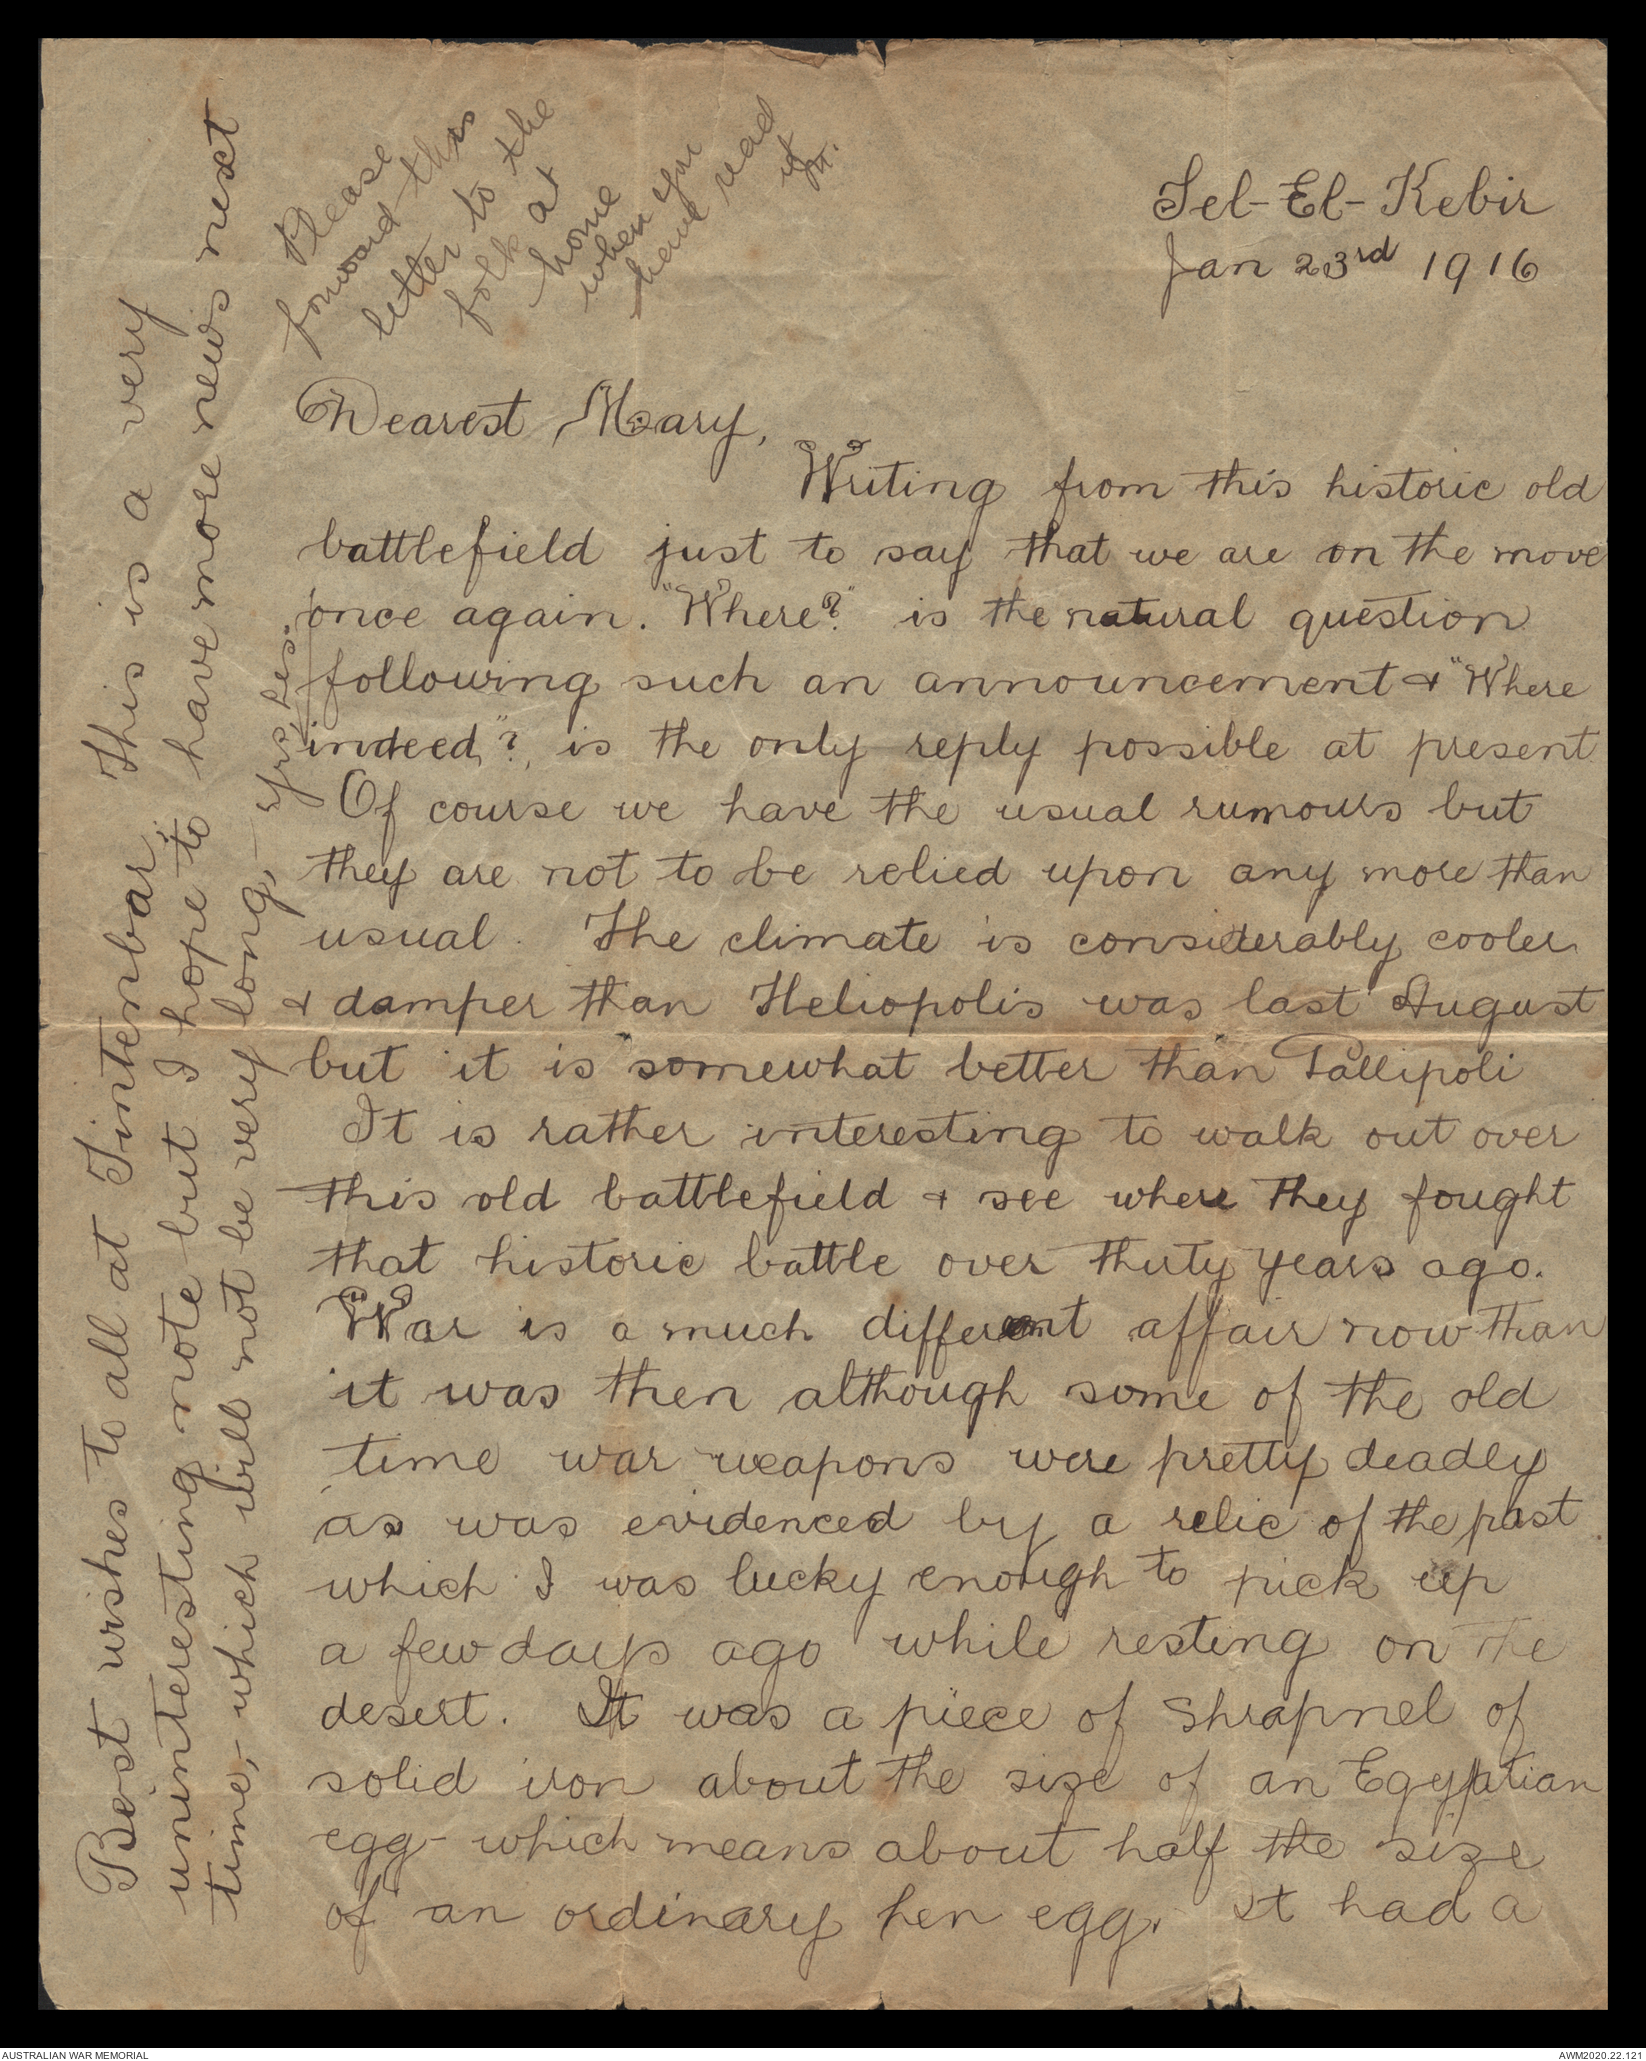 Please
forward this
letter to the
folk at
home
when you
have read
it
M.
Tel-El-Kebir
Jan 23rd 1916
Dearest Mary,
Writing from this historic old
battlefield just to say that we are on the move
once again. "Where?" is the natural question
following such an announcement & "Where
indeed"? is the only reply possible at present
Of course we have the usual rumours but
they are not to be relied upon any more than
usual. The climate is considerably cooler
& damper than Heliopolis was last August
but it is somewhat better than Gallipoli
It is rather interesting to walk out over
this old battlefield & see where they fought
that historic battle over thirty years ago.
War is a much different affair now than
it was then although some of the old
time war weapons were pretty deadly
as was evidenced by a relic of the past
which I was lucky enough to pick up
a few days ago while resting on the
desert. It was a piece of shrapnel of
solid iron about the size of an Egyptian
egg - which means about half the size
of an ordinary hen egg. It had a
Best wishes to all at Tintenbar. This is a very
uninteresting note but I hope to have more news next
time, - which will not be very long, - yrs, Les.
AUSTRALIAN WAR MEMORIAL
AWM2020.22.121